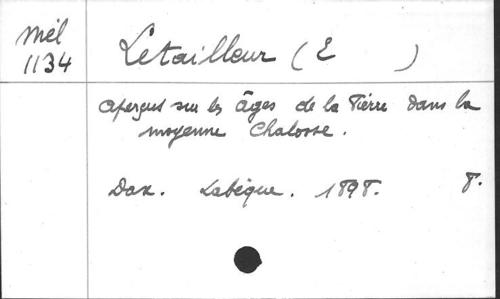 Mél
1134
Letailleur (E )
Aperçus sur les âges de la Pierre dans la
moyenne Chalosse.
Dax. Labèque. 1898. 8.